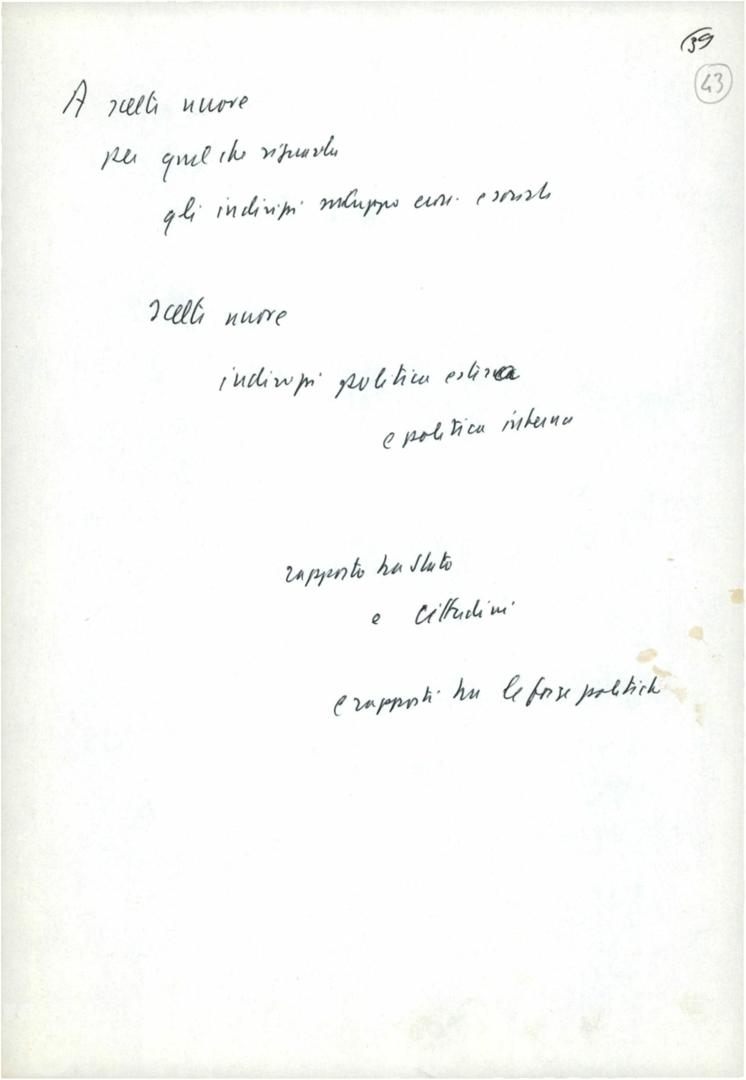 39
43
A scelte nuove
per quel che riguarda
gli indirizzi sviluppo econ. e sociale
scelte nuove
indirizzi politica estera
e politica interna
rapporto tra Stato
e cittadini
e rapporti tra le forze politiche